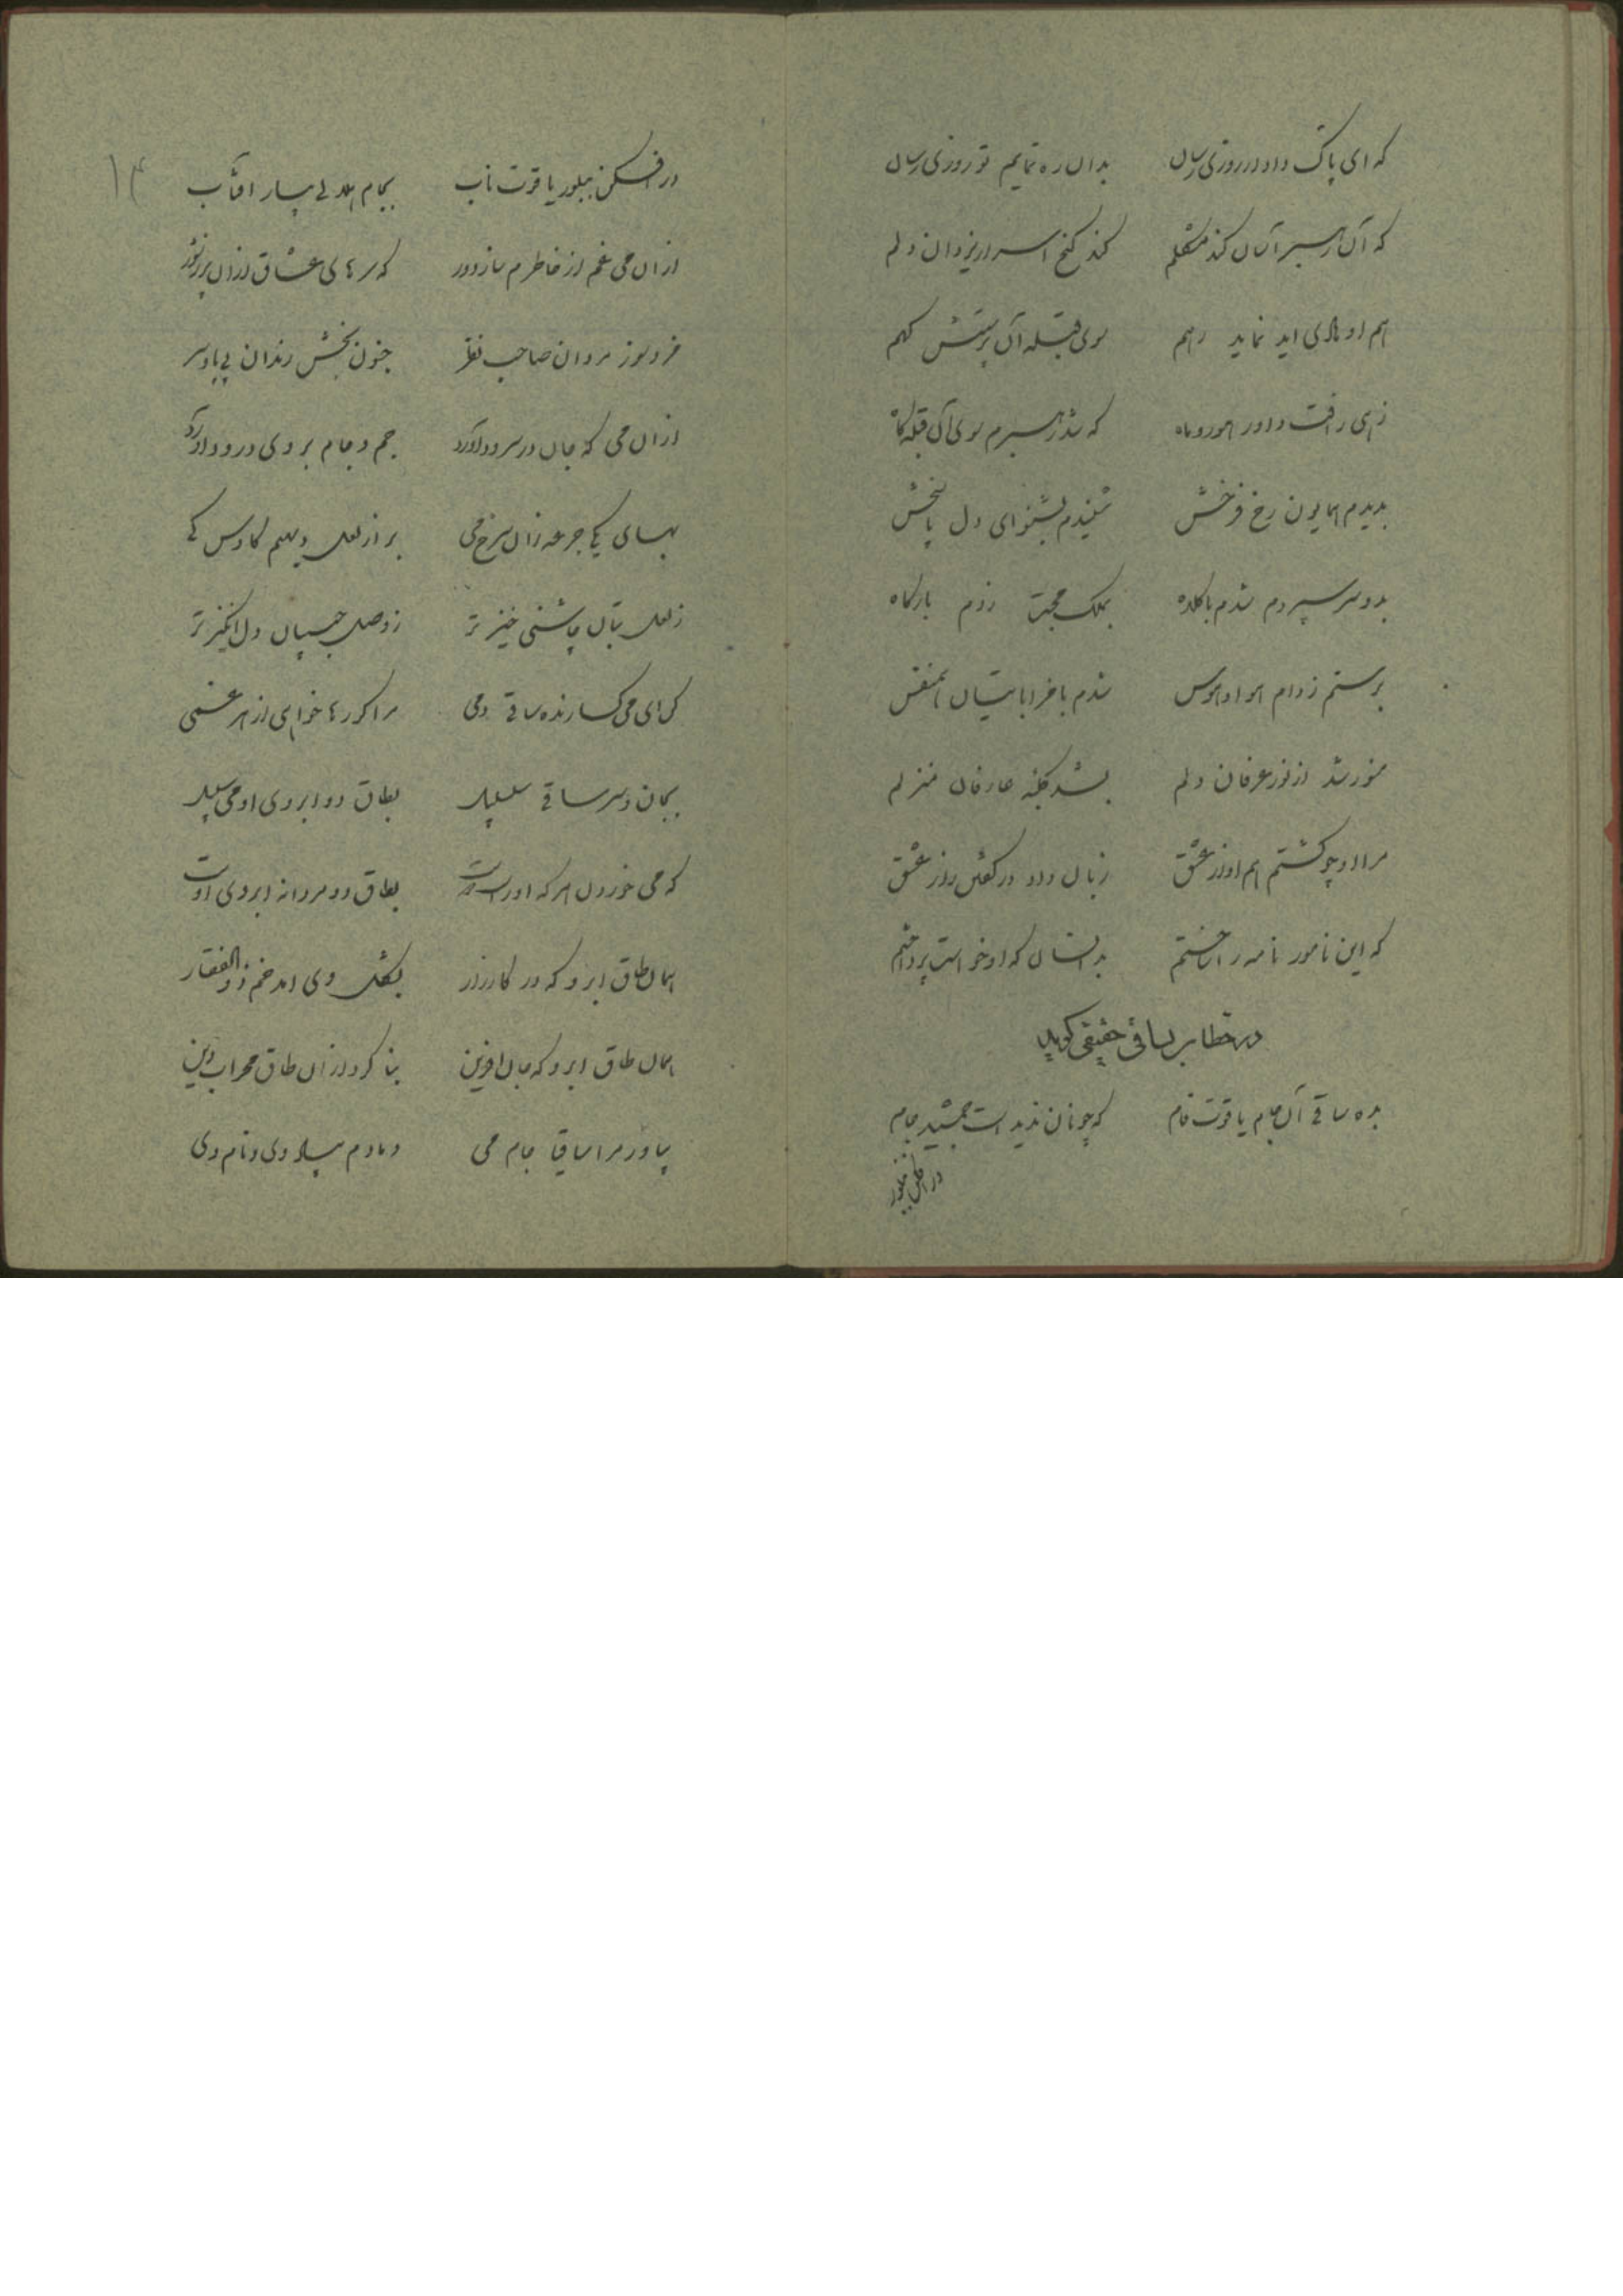 که ای پاک دادار روزی رسان بدان ره نمایم تو روزی رسان
که آن رهبر آسان کند مشکلم کند گنج اسرار یزدان دلم
هم او هادی آید نماید رهم سوی قبله آن پرستش گهم
زهی رافت داور هور و ماه که شد رهبرم سوی آن قبله گاه
بدیدم همایون رخ فرخش شنیدم بشنو ای دل پاسخش
بدو سر سپردم شدم با کلاه بملک محبت زدم بارگاه
برستم ز دام هوا و هوس شدم با خراباتیان همنفس
منور شد از نور عرفان دلم بشد کلبه عارفان منزلم
مرا او چو گشتم هم اواز عشق زبان داد در گفتن راز عشق
که این نامور نامه را ساختم بدانسان که او خواست پرداختم
در خطاب بساقی حقیقی گوید
بده ساقی آن جام یاقوت فام که چونان ندیدست جمشید جام
در افکن ببلور
۱۴
در افکن ببلور یاقوت ناب بجام هلالی بیار افتاب
ازان می غم از خاطرم ساز دور که سرهای عشاق ازان پر ز شور
خرد سوز مردان صاحب نظر جنون بخش رندان بی پا و سر
ازان می که جان در سرود آورد جم و جام بر وی درود آورد
بهای یکی جرعه زان سرخ می بر از لعل دیهیم کاوس کی
ز لعل بتان چاشنی خیز تر ز وصل حبیبان دل انگیز تر
ای می گسارنده ساقی دمی مرا گر رها خواهی از هر غمی
بجان و سر ساقی سلسبیل بطاق دو ابروی او می سبیل
که می خوردن هر که او راست بطاق دو مردانه ابروی اوست
همان طاق ابرو که در کارزار بشکل وی امد خم ذوالفقار
همان طاق ابرو که جان افرین بنا کرد ازان طاق محراب دین
بیاور مرا ساقیا جام می دمادم بیاد وی و نام وی